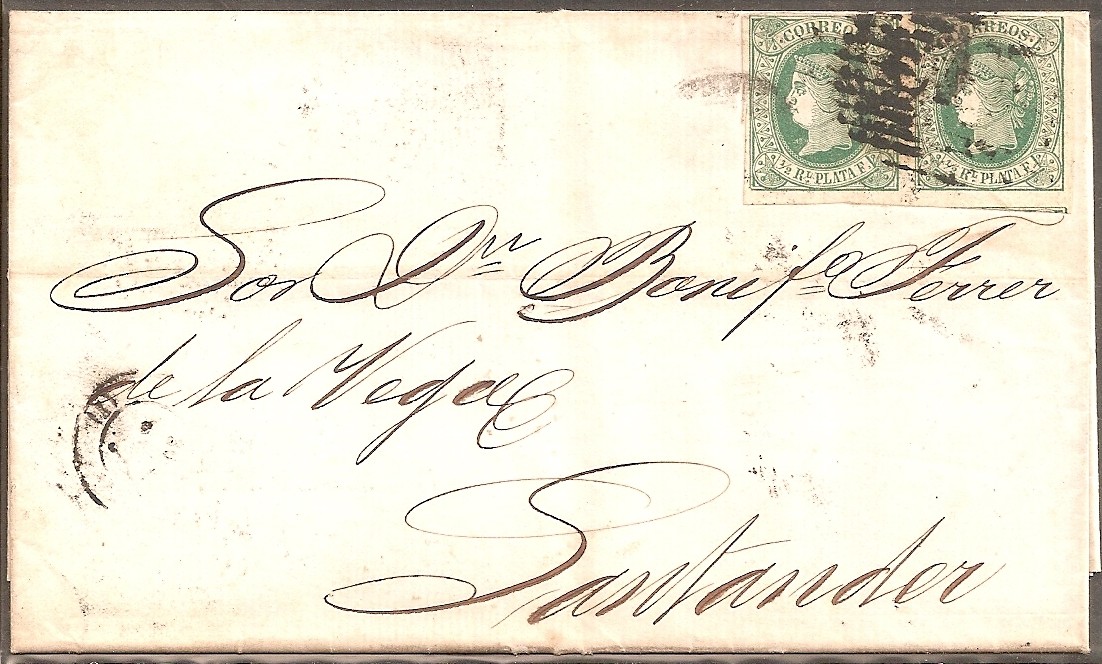 CORREOS
½ Rˡ PLATA F.
CORREOS
½ Rˡ PLATA F.
Sor Dn Bonifo Ferrer
de la Vega
Santander